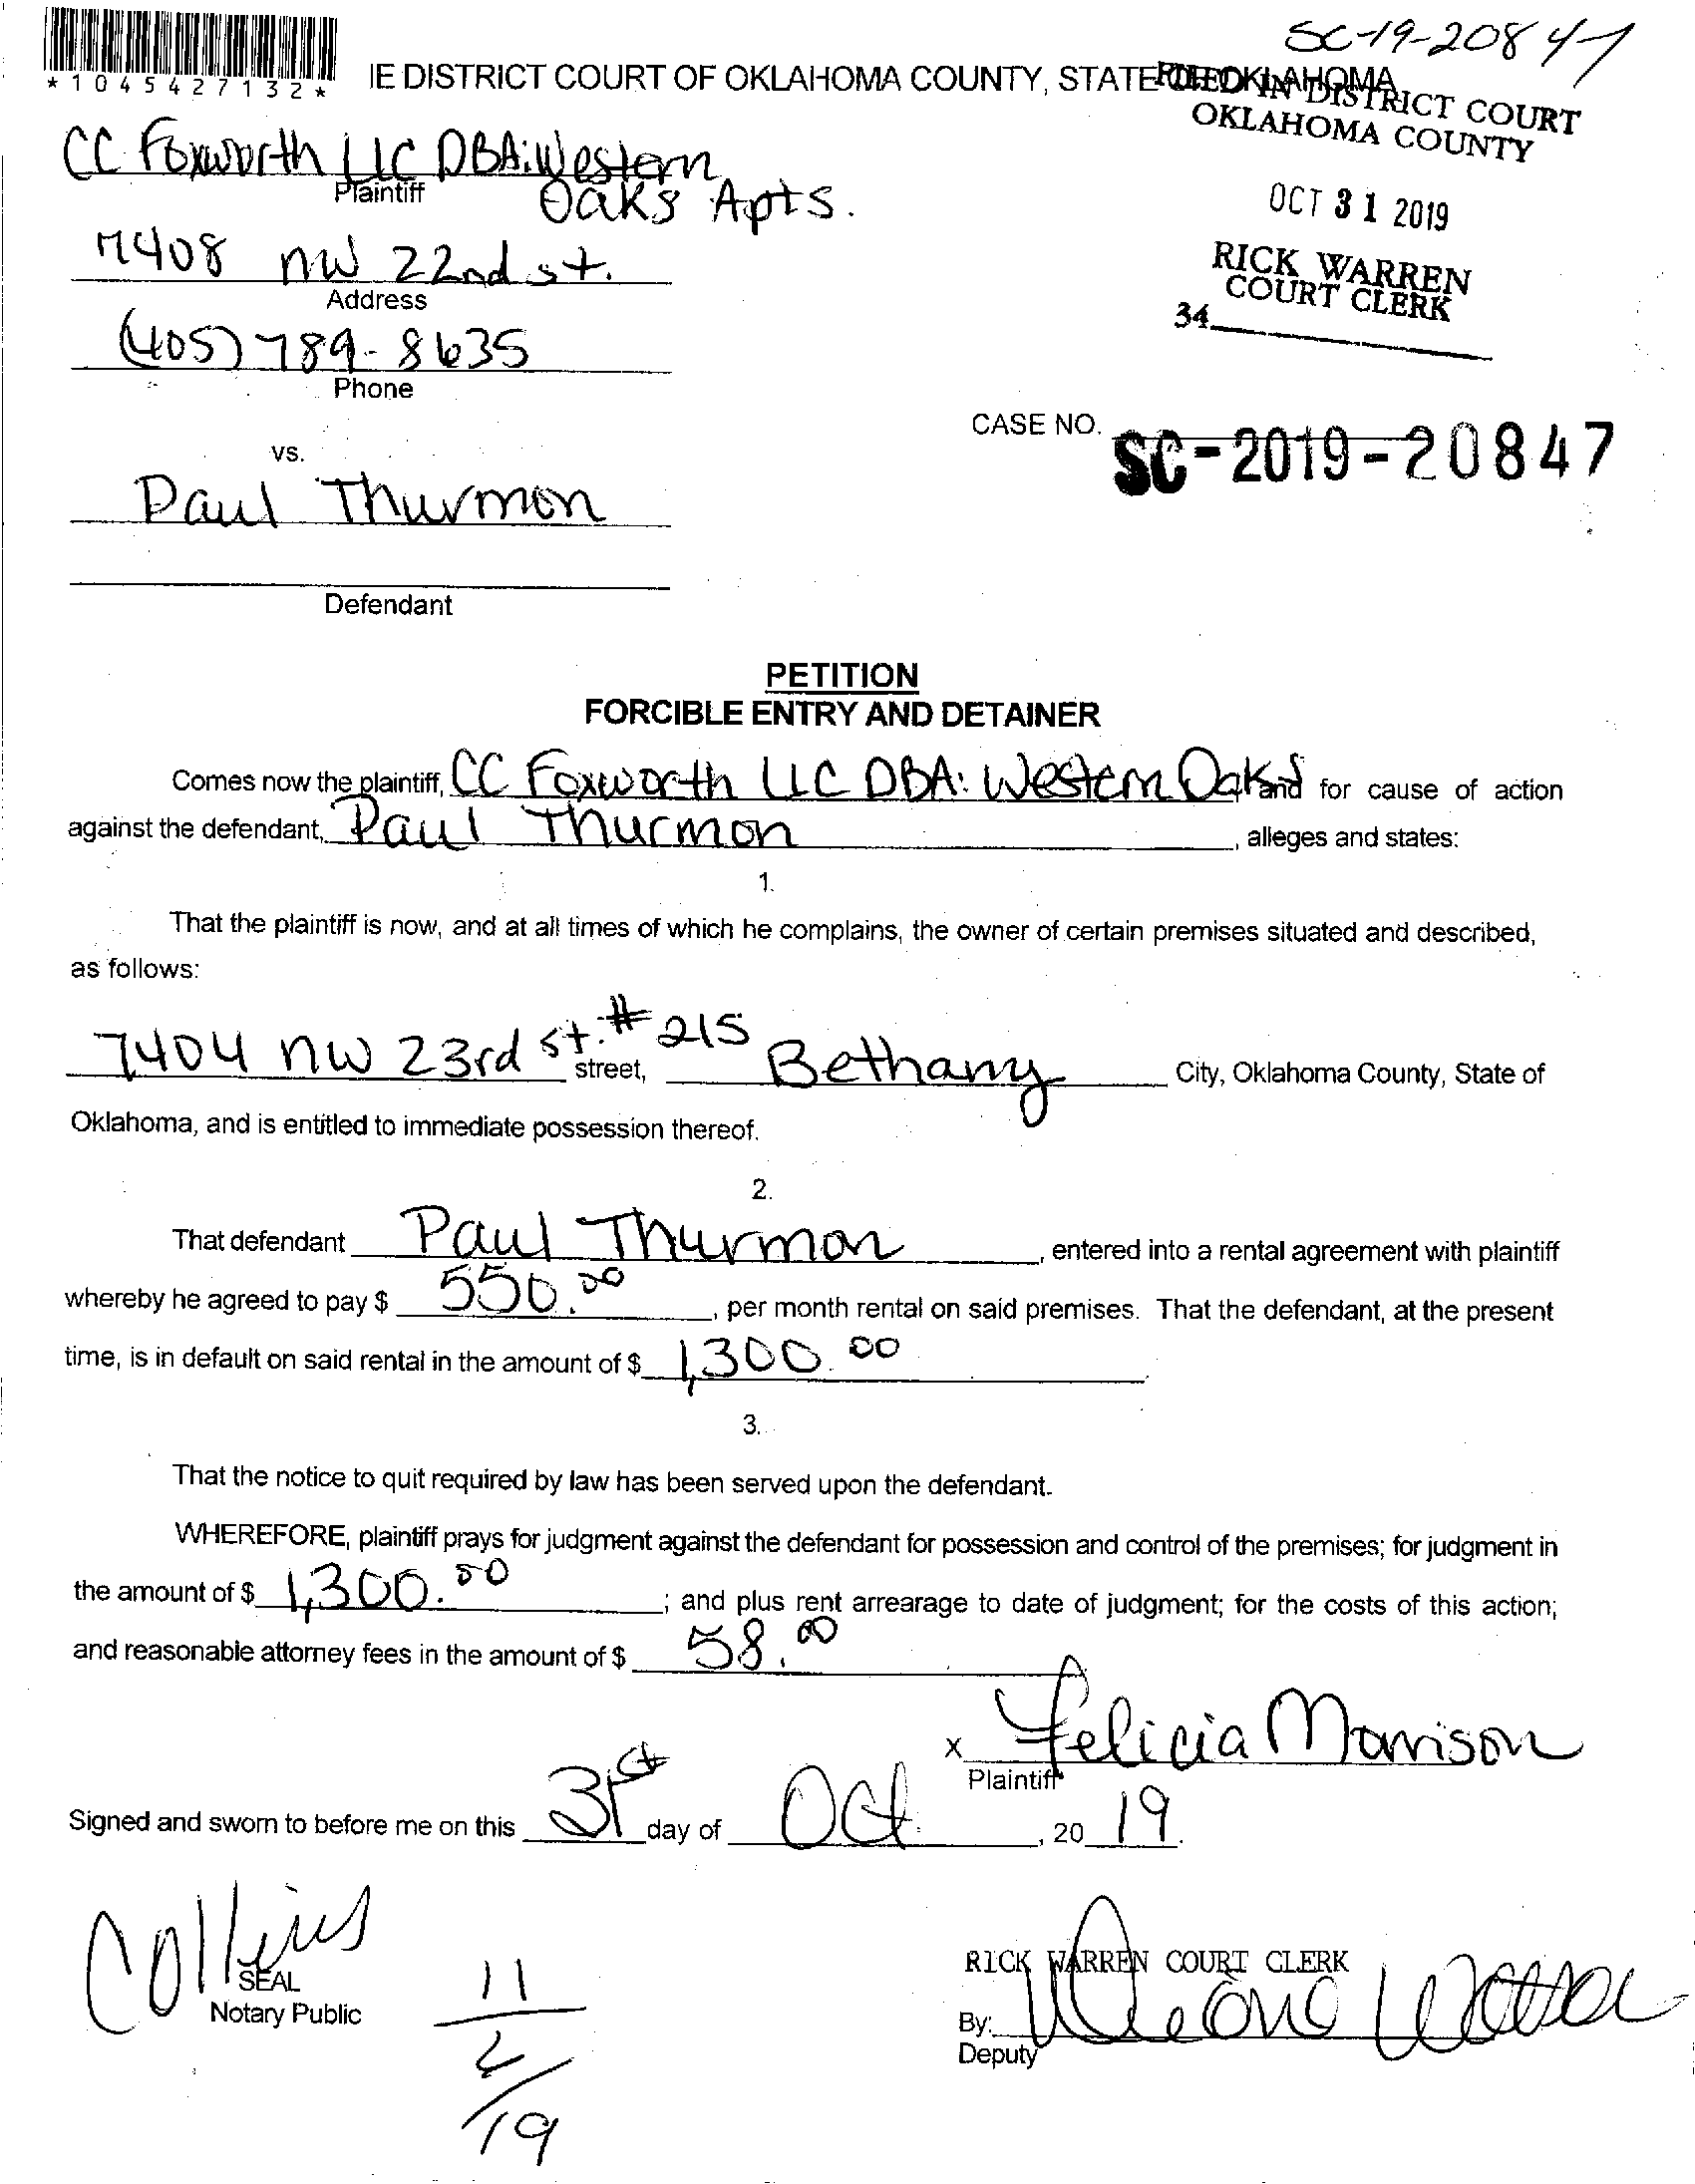 SC-19-20847
*1045427132*
IE DISTRICT COURT OF OKLAHOMA COUNTY, STATE OF OKLAHOMA
FILED IN DISTRICT COURT
OKLAHOMA COUNTY
CC Foxworth LLC DBA: Western
Plaintiff
Oaks Apts.
OCT 31 2019
7408 NW 22nd st.
Address
RICK WARREN
COURT CLERK
34
(405) 789-8635
Phone
CASE NO. SC-2019-20847
vs.
Paul Thurmon
Defendant
PETITION
FORCIBLE ENTRY AND DETAINER
Comes now the plaintiff, CC Foxworth LLC DBA: Western Oaks and for cause of action
against the defendant, Paul Thurmon, alleges and states:
1.
That the plaintiff is now, and at all times of which he complains, the owner of certain premises situated and described,
as follows:
7404 NW 23rd st. #215 street, Bethany City, Oklahoma County, State of
Oklahoma, and is entitled to immediate possession thereof.
2.
That defendant Paul Thurmon, entered into a rental agreement with plaintiff
whereby he agreed to pay $ 550.00, per month rental on said premises. That the defendant, at the present
time, is in default on said rental in the amount of $ 1,300.00.
3.
That the notice to quit required by law has been served upon the defendant.
WHEREFORE, plaintiff prays for judgment against the defendant for possession and control of the premises; for judgment in
the amount of $ 1,300.00; and plus rent arrearage to date of judgment; for the costs of this action;
and reasonable attorney fees in the amount of $ 58.00
x Felicia Morrison
Plaintiff
Signed and sworn to before me on this 31st day of Oct, 20 19.
Collins
SEAL
Notary Public
11
2
19
RICK WARREN COURT CLERK
By:
Deputy